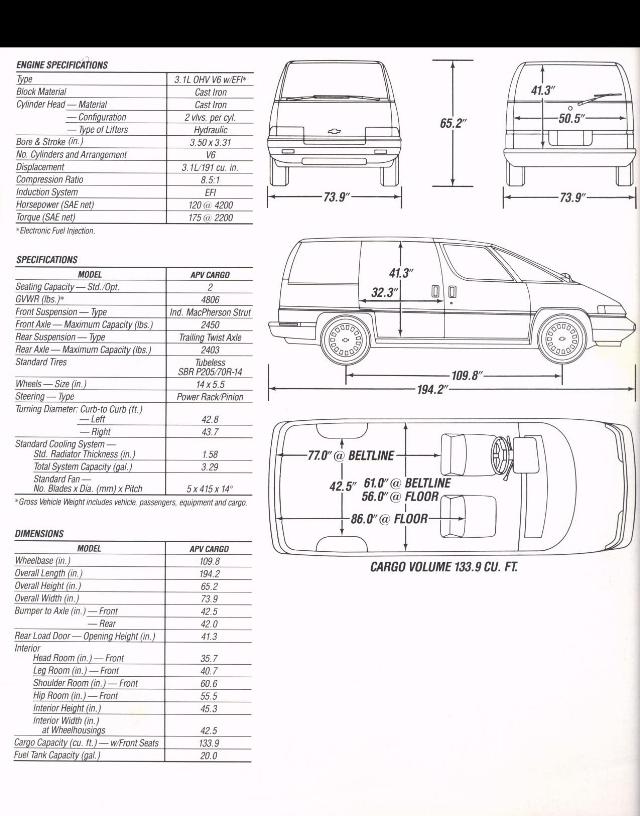 ENGINE SPECIFICATIONS
Type 3.1L OHV V6 w/EFI*
Block Material Cast Iron
Cylinder Head — Material Cast Iron
— Configuration 2 vlvs. per cyl.
— Type of Lifters Hydraulic
Bore & Stroke (in.) 3.50 x 3.31
No. Cylinders and Arrangement V6
Displacement 3.1L/191 cu. in.
Compression Ratio 8.5:1
Induction System EFI
Horsepower (SAE net) 120 @ 4200
Torque (SAE net) 175 @ 2200
*Electronic Fuel Injection.
SPECIFICATIONS
MODEL APV CARGO
Seating Capacity — Std./Opt. 2
GVWR (lbs.)* 4806
Front Suspension — Type Ind. MacPherson Strut
Front Axle — Maximum Capacity (lbs.) 2450
Rear Suspension — Type Trailing Twist Axle
Rear Axle — Maximum Capacity (lbs.) 2403
Standard Tires Tubeless
SBR P205/70R-14
Wheels — Size (in.) 14 x 5.5
Steering — Type Power Rack/Pinion
Turning Diameter: Curb-to Curb (ft.)
— Left 42.8
— Right 43.7
Standard Cooling System —
Std. Radiator Thickness (in.) 1.58
Total System Capacity (gal.) 3.29
Standard Fan —
No. Blades x Dia. (mm) x Pitch 5 x 415 x 14°
*Gross Vehicle Weight includes vehicle, passengers, equipment and cargo.
DIMENSIONS
MODEL APV CARGO
Wheelbase (in.) 109.8
Overall Length (in.) 194.2
Overall Height (in.) 65.2
Overall Width (in.) 73.9
Bumper to Axle (in.) — Front 42.5
— Rear 42.0
Rear Load Door — Opening Height (in.) 41.3
Interior
Head Room (in.) — Front 35.7
Leg Room (in.) — Front 40.7
Shoulder Room (in.) — Front 60.6
Hip Room (in.) — Front 55.5
Interior Height (in.) 45.3
Interior Width (in.)
at Wheelhousings 42.5
Cargo Capacity (cu. ft.) — w/Front Seats 133.9
Fuel Tank Capacity (gal.) 20.0
65.2"
41.3"
50.5"
73.9"
73.9"
41.3"
32.3"
109.8"
194.2"
77.0" @ BELTLINE
42.5"
61.0" @ BELTLINE
56.0" @ FLOOR
86.0" @ FLOOR
CARGO VOLUME 133.9 CU. FT.